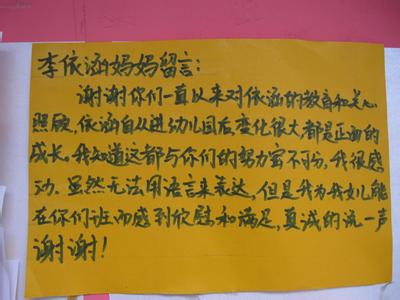 李依涵妈妈留言：
谢谢你们一直以来对依涵的教育和关心
照顾，依涵自从进幼儿园后变化很大都是正面的
成长。我知道这都与你们的努力密不可分，我很感
动。虽然无法用语言来表达，但是我为我女儿能
在你们班而感到欣慰和满足，真诚的说一声
谢谢！